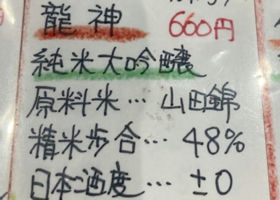 龍神 660円
純米大吟醸
原料米…山田錦
精米歩合…48%
日本酒度…±0